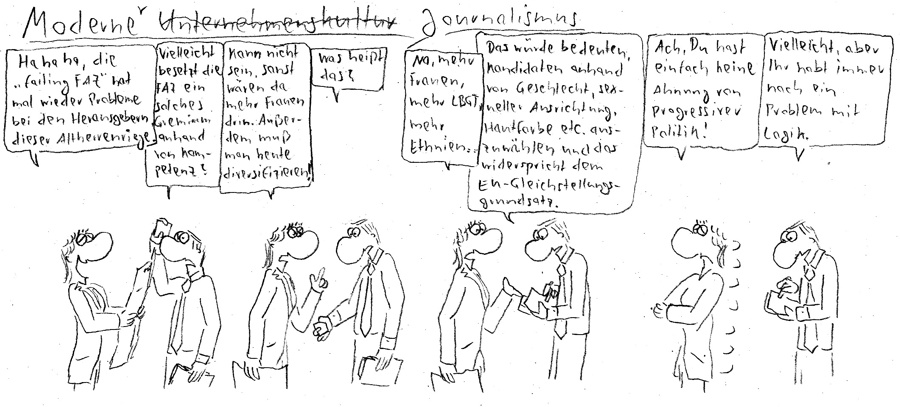 Moderner Unternehmenskultur Journalismus
Hahaha, die
„failing FAZ" hat
mal wieder Probleme
bei den Herausgebern
dieser Altherrenriege!
Vielleicht
besetzt die
FAZ ein
solches
Gremium
anhand
von Kom-
petenz?
Kann nicht
sein, sonst
wären da
mehr Frauen
drin. Außer-
dem muß
man heute
diversifizieren!
Was heißt
das?
Na, mehr
Frauen,
mehr LBGT,
mehr
Ethnien...
Das würde bedeuten,
Kandidaten anhand
von Geschlecht, sex-
ueller Ausrichtung,
Hautfarbe etc. aus-
zuwählen und das
widerspricht dem
EU-Gleichstellungs-
grundsatz.
Ach, Du hast
einfach keine
Ahnung von
Progressiver
Politik!
Vielleicht, aber
Ihr habt immer
noch ein
Problem mit
Logik.